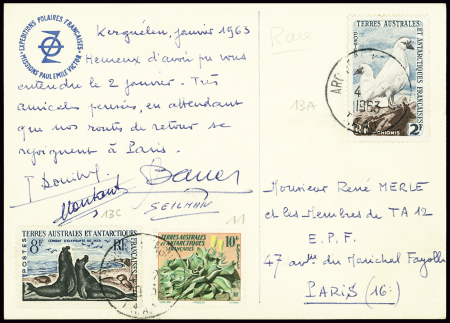 EXPEDITIONS POLAIRES FRANÇAISES
MISSIONS PAUL EMILE VICTOR
Kerguélen, janvier 1963
Heureux d'avoir pu vous
entendre le 2 janvier. Très
amicales pensées, en attendant
que nos routes de retour se
rejoignent à Paris.
Bauer
SEILHAN
13C
11
Rare
13A
TERRES AUSTRALES
ET ANTARCTIQUES FRANÇAISES
CHIONIS
2F
4
1963
8F
TERRES AUSTRALES ET ANTARCTIQUES
FRANÇAISES
COMBAT D'ELEPHANTS DE MER
RF
POSTES
TERRES AUSTRALES
ET ANTARCTIQUES
FRANÇAISES
10F
Monsieur René MERLE
et les Membres de TA 12
E.P.F.
47 av. du Maréchal Fayolle
PARIS (16)